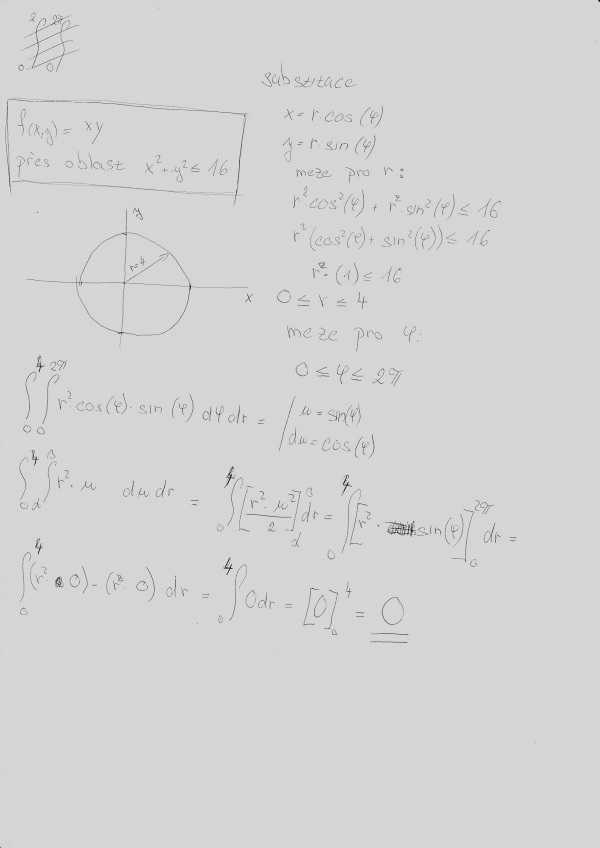 2 2π
∫ ∫
0 0
f(x,y) = xy
přes oblast x² + y² ≤ 16
y
r=4
x
substituce
x = r · cos (φ)
y = r · sin (φ)
meze pro r :
r² cos²(φ) + r² sin²(φ) ≤ 16
r² (cos²(φ) + sin²(φ)) ≤ 16
r² · (1) ≤ 16
0 ≤ r ≤ 4
meze pro φ:
0 ≤ φ ≤ 2π
∫₀⁴ ∫₀^2π r² cos(φ) · sin (φ) dφ dr = | u = sin(φ)
du = cos(φ)
∫₀⁴ ∫_α^β r² · u du dr = ∫₀⁴ [r² · u² / 2]_α^β dr = ∫₀⁴ [r² · sin(φ)]₀^2π dr =
∫₀⁴ (r² · 0) - (r² · 0) dr = ∫₀⁴ 0 dr = [0]₀⁴ = 0